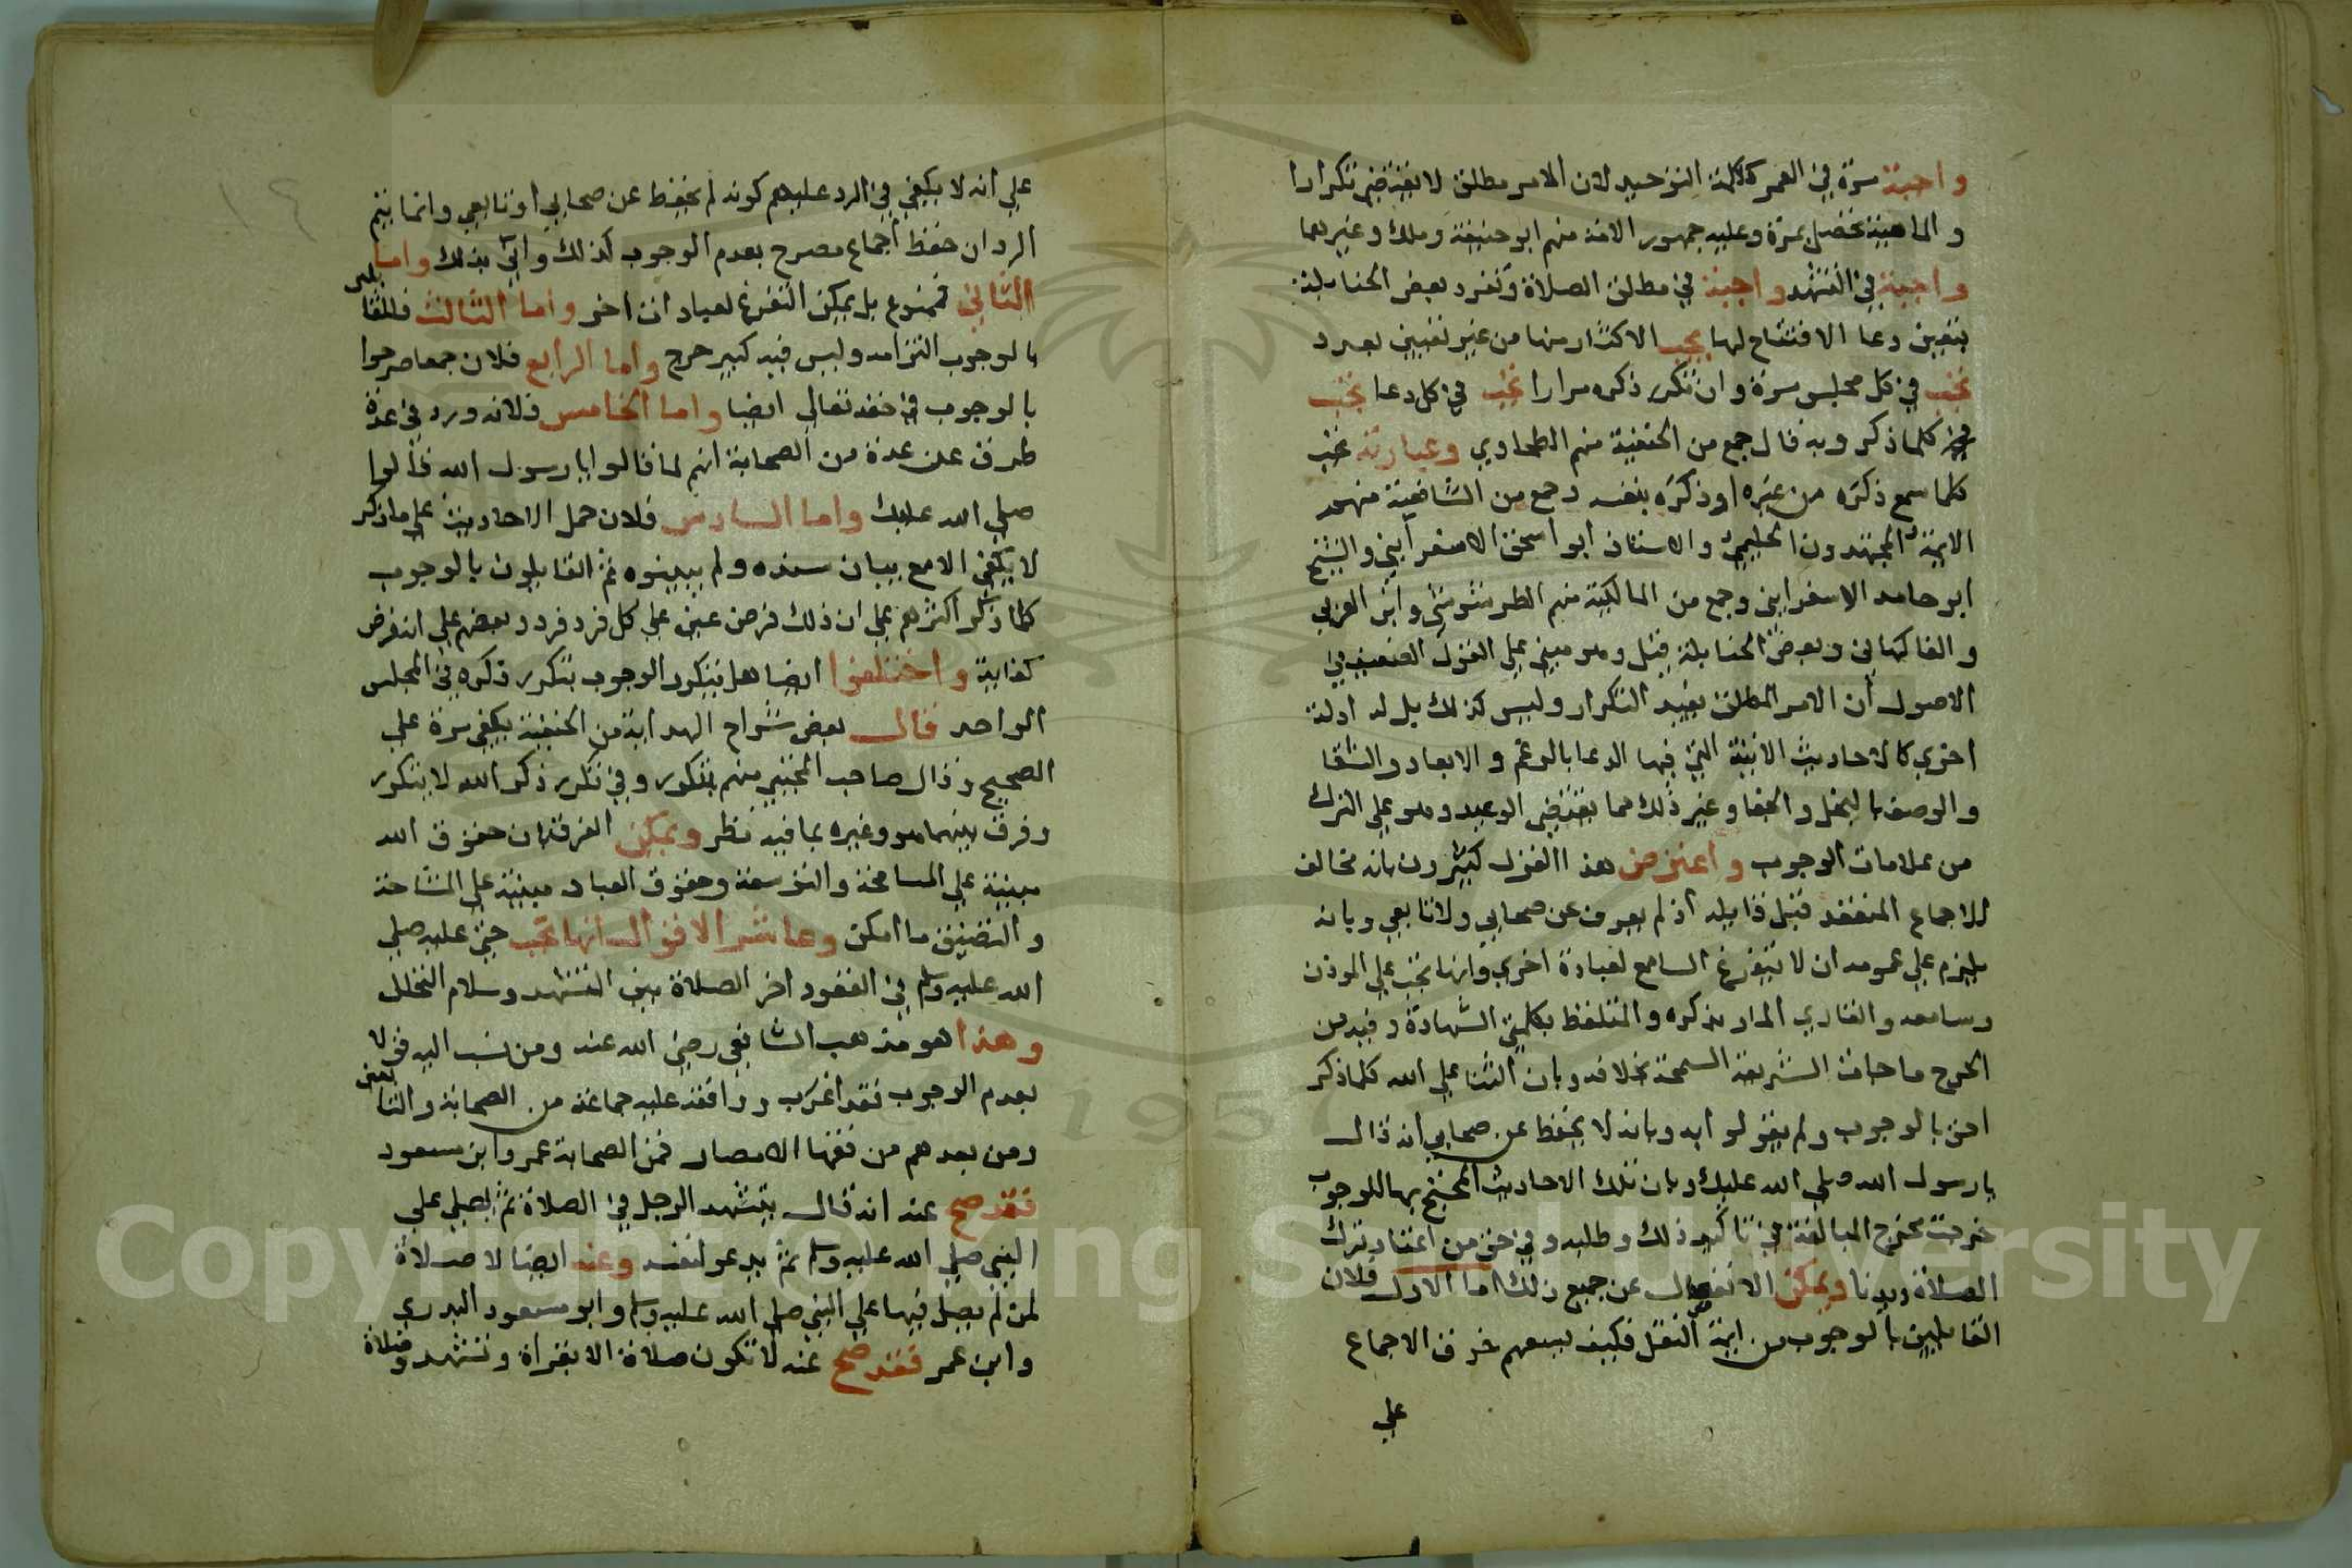 واجبة مرة في العمر ككلمة التوحيد لان الامر مطلق لا يقتضي تكرارا
والماهية تحصل بمرة وعليه جمهور الامة منهم ابو حنيفة وملك وغيرهما
واجبة في التشهد واجبة في مطلق الصلاة وتفرد بعض الحنابلة
بتعين دعا الافتتاح لها يجب الاكثار منها من غير تعيين بعدد
تجب في كل مجلس مرة وان تكرر ذكره مرارا تجب في كل دعا تجب
كلما ذكر وبه قال جمع من الحنفية منهم الطحاوي وعبارته تجب
كلما سمع ذكره من غيره او ذكره بنفسه وجمع من الشافعية منهم
الايمة المجتهدون الحليمي والاستاذ ابو اسحق الاسفرايني والشيخ
ابو حامد الاسفرايني وجمع من المالكية منهم الطرسوسي وابن العربي
والفاكهاني وبعض الحنابلة قيل وهو مبني على القول الضعيف في
الاصول ان الامر المطلق يفيد التكرار وليس كذلك بل له ادلة
اخري كالاحاديث الاتية التي فيها الدعا بالرغم والابعاد والشقا
والوصف بالبخل والجفا وغير ذلك مما يقتضي الوعيد وهو على الترك
من علامات الوجوب واعترض هذا القول كثيرون بانه مخالف
للاجماع المنعقد قبل قايله اذ لم يعرف عن صحابي ولا تابعي وبانه
يلزم علي عمومه ان لا يتفرغ السامع لعبادة اخري وانها تجب علي الموذن
وسامعه والقاري المار بذكره والمتلفظ بكلمتي الشهادة وفيه من
الحرج ما جات الشريعة السمحة بخلافه وبان الثنا علي الله كلما ذكر
احق بالوجوب ولم يقولوا به وبانه لا يحفظ عن صحابي انه قال
يا رسول الله صلي الله عليك وبان تلك الاحاديث المحتج بها للوجوب
خرجت مخرج المبالغة في تاكيد ذلك وطلبه وفي حق من اعتاد ترك
الصلاة ديدنا ويمكن الانفصال عن جميع ذلك اما الاول فلان
القايلين بالوجوب من ايمة النقل فكيف يسعهم خرق الاجماع
علي
علي انه لا يكفي في الرد عليهم كونه لم يحفظ عن صحابي او تابعي وانما يتم
الرد ان حفظ اجماع مصرح بعدم الوجوب كذلك واني بذلك واما
الثاني فممنوع بل يمكن التفرغ لعبادات اخر واما الثالث فللقايلين
بالوجوب التزامه وليس فيه كبير حرج واما الرابع فلان جمعا صرحوا
بالوجوب في حقه تعالي ايضا واما الخامس فلانه ورد في عدة
طرق عن عدة من الصحابة انهم لما قالوا يا رسول الله قالوا
صلي الله عليك واما السادس فلان حمل الاحاديث علي ما ذكر
لا يكفي الا مع بيان سنده ولم يبينوه ثم القايلون بالوجوب
كلما ذكر اكثرهم علي ان ذلك فرض عين علي كل فرد فرد وبعضهم علي انه فرض
كفاية واختلفوا ايضا هل يتكرر الوجوب بتكرر ذكره في المجلس
الواحد قال بعض شراح الهداية من الحنفية يكفي مرة علي
الصحيح وقال صاحب المجتبي منهم يتكرر وفي تكرر ذكر الله لا يتكرر
وفرق بينهما هو وغيره بما فيه نظر ويمكن الفرق بان حقوق الله
مبنية علي المسامحة والتوسعة وحقوق العباد مبنية علي المشاحة
والتضييق ما امكن وعاشر الاقوال انها تجب حتي عليه صلي
الله عليه وسلم في القعود اخر الصلاة بين التشهد وسلام التحلل
وهذا هو مذهب الشافعي رضي الله عنه ومن نسب اليه قولا
بعدم الوجوب فقد اغرب ووافقه عليه جماعة من الصحابة والتابعين
ومن بعدهم من فقها الامصار فمن الصحابة عمر وابن مسعود
فقد صح عنه انه قال يتشهد الرجل في الصلاة ثم يصلي علي
النبي صلي الله عليه وسلم ثم يدعو لنفسه وعنه ايضا لا صلاة
لمن لم يصل فيها علي النبي صلي الله عليه وسلم وابو مسعود البدري
وابن عمر فقد صح عنه لا تكون صلاة الا بقراة وتشهد وصلاة
١٤
Copyright © King Saud University
1957